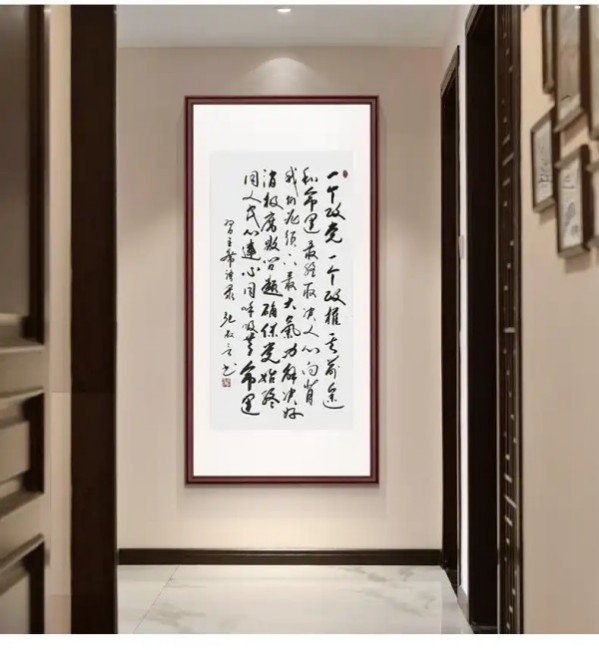 一个政党一个政权其前途
和命运最终取决人心向背
我们必须下最大氣力解决好
消极腐败问题确保党始终
同人民心连心同呼吸共命运
習主席语录